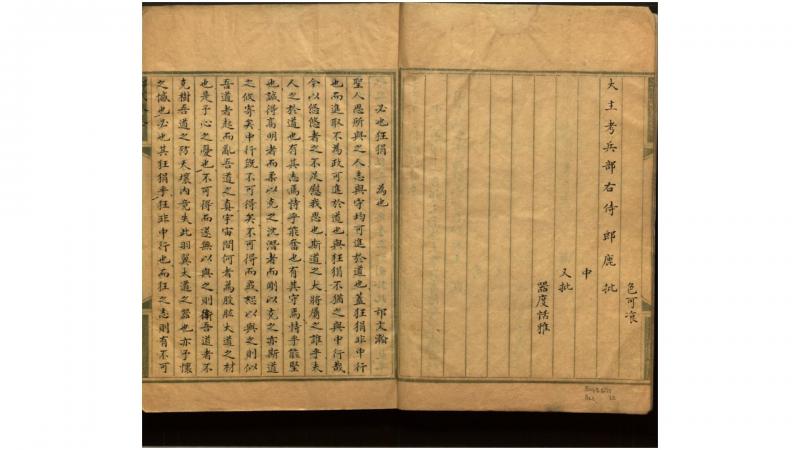 色可飡
大主考兵部右侍郎鹿批
中
又批
器度恬雅
必也狂狷 為也 祁文瀚
聖人思所與之人志與守均可進於道也蓋狂狷非中行
也而進取不為政可進於道也與狂狷不猶之與中行哉
今以悠悠者之不足慰我思也斯道之大將屬之誰乎夫
人之於道也有其志焉恃乎能奮也有其守焉恃乎能堅
也誠得高明者而柔以克之沈潛者而剛以克之亦斯道
之攸寄矣中行既不可得矣不可得而或恕以與之則似
吾道者起而亂吾道之真宇宙間何者為股肱大道之材
也是予心之憂也不可得而遂無以與之則衛吾道者不
克樹吾道之防天壤內竟失此羽翼大道之器也亦予懷
之慽也必也其狂狷乎狂非中行也而狂之志則有不可